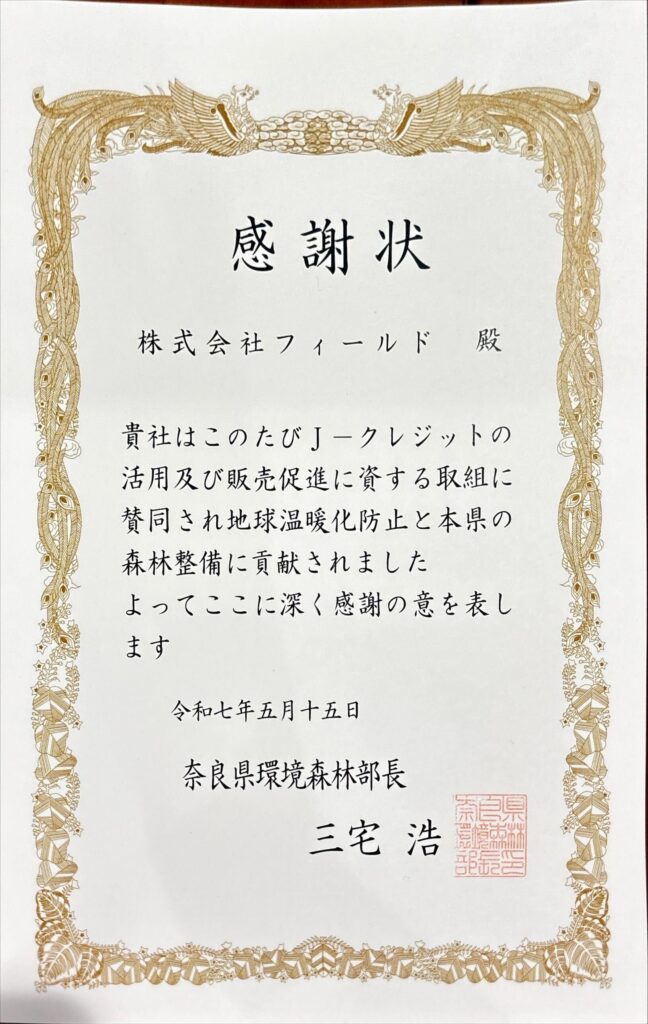 感謝状
株式会社フィールド 殿
貴社はこのたびJ-クレジットの
活用及び販売促進に資する取組に
賛同され地球温暖化防止と本県の
森林整備に貢献されました
よってここに深く感謝の意を表し
ます
令和七年五月十五日
奈良県環境森林部長
三宅 浩
奈良県環境森林部長印